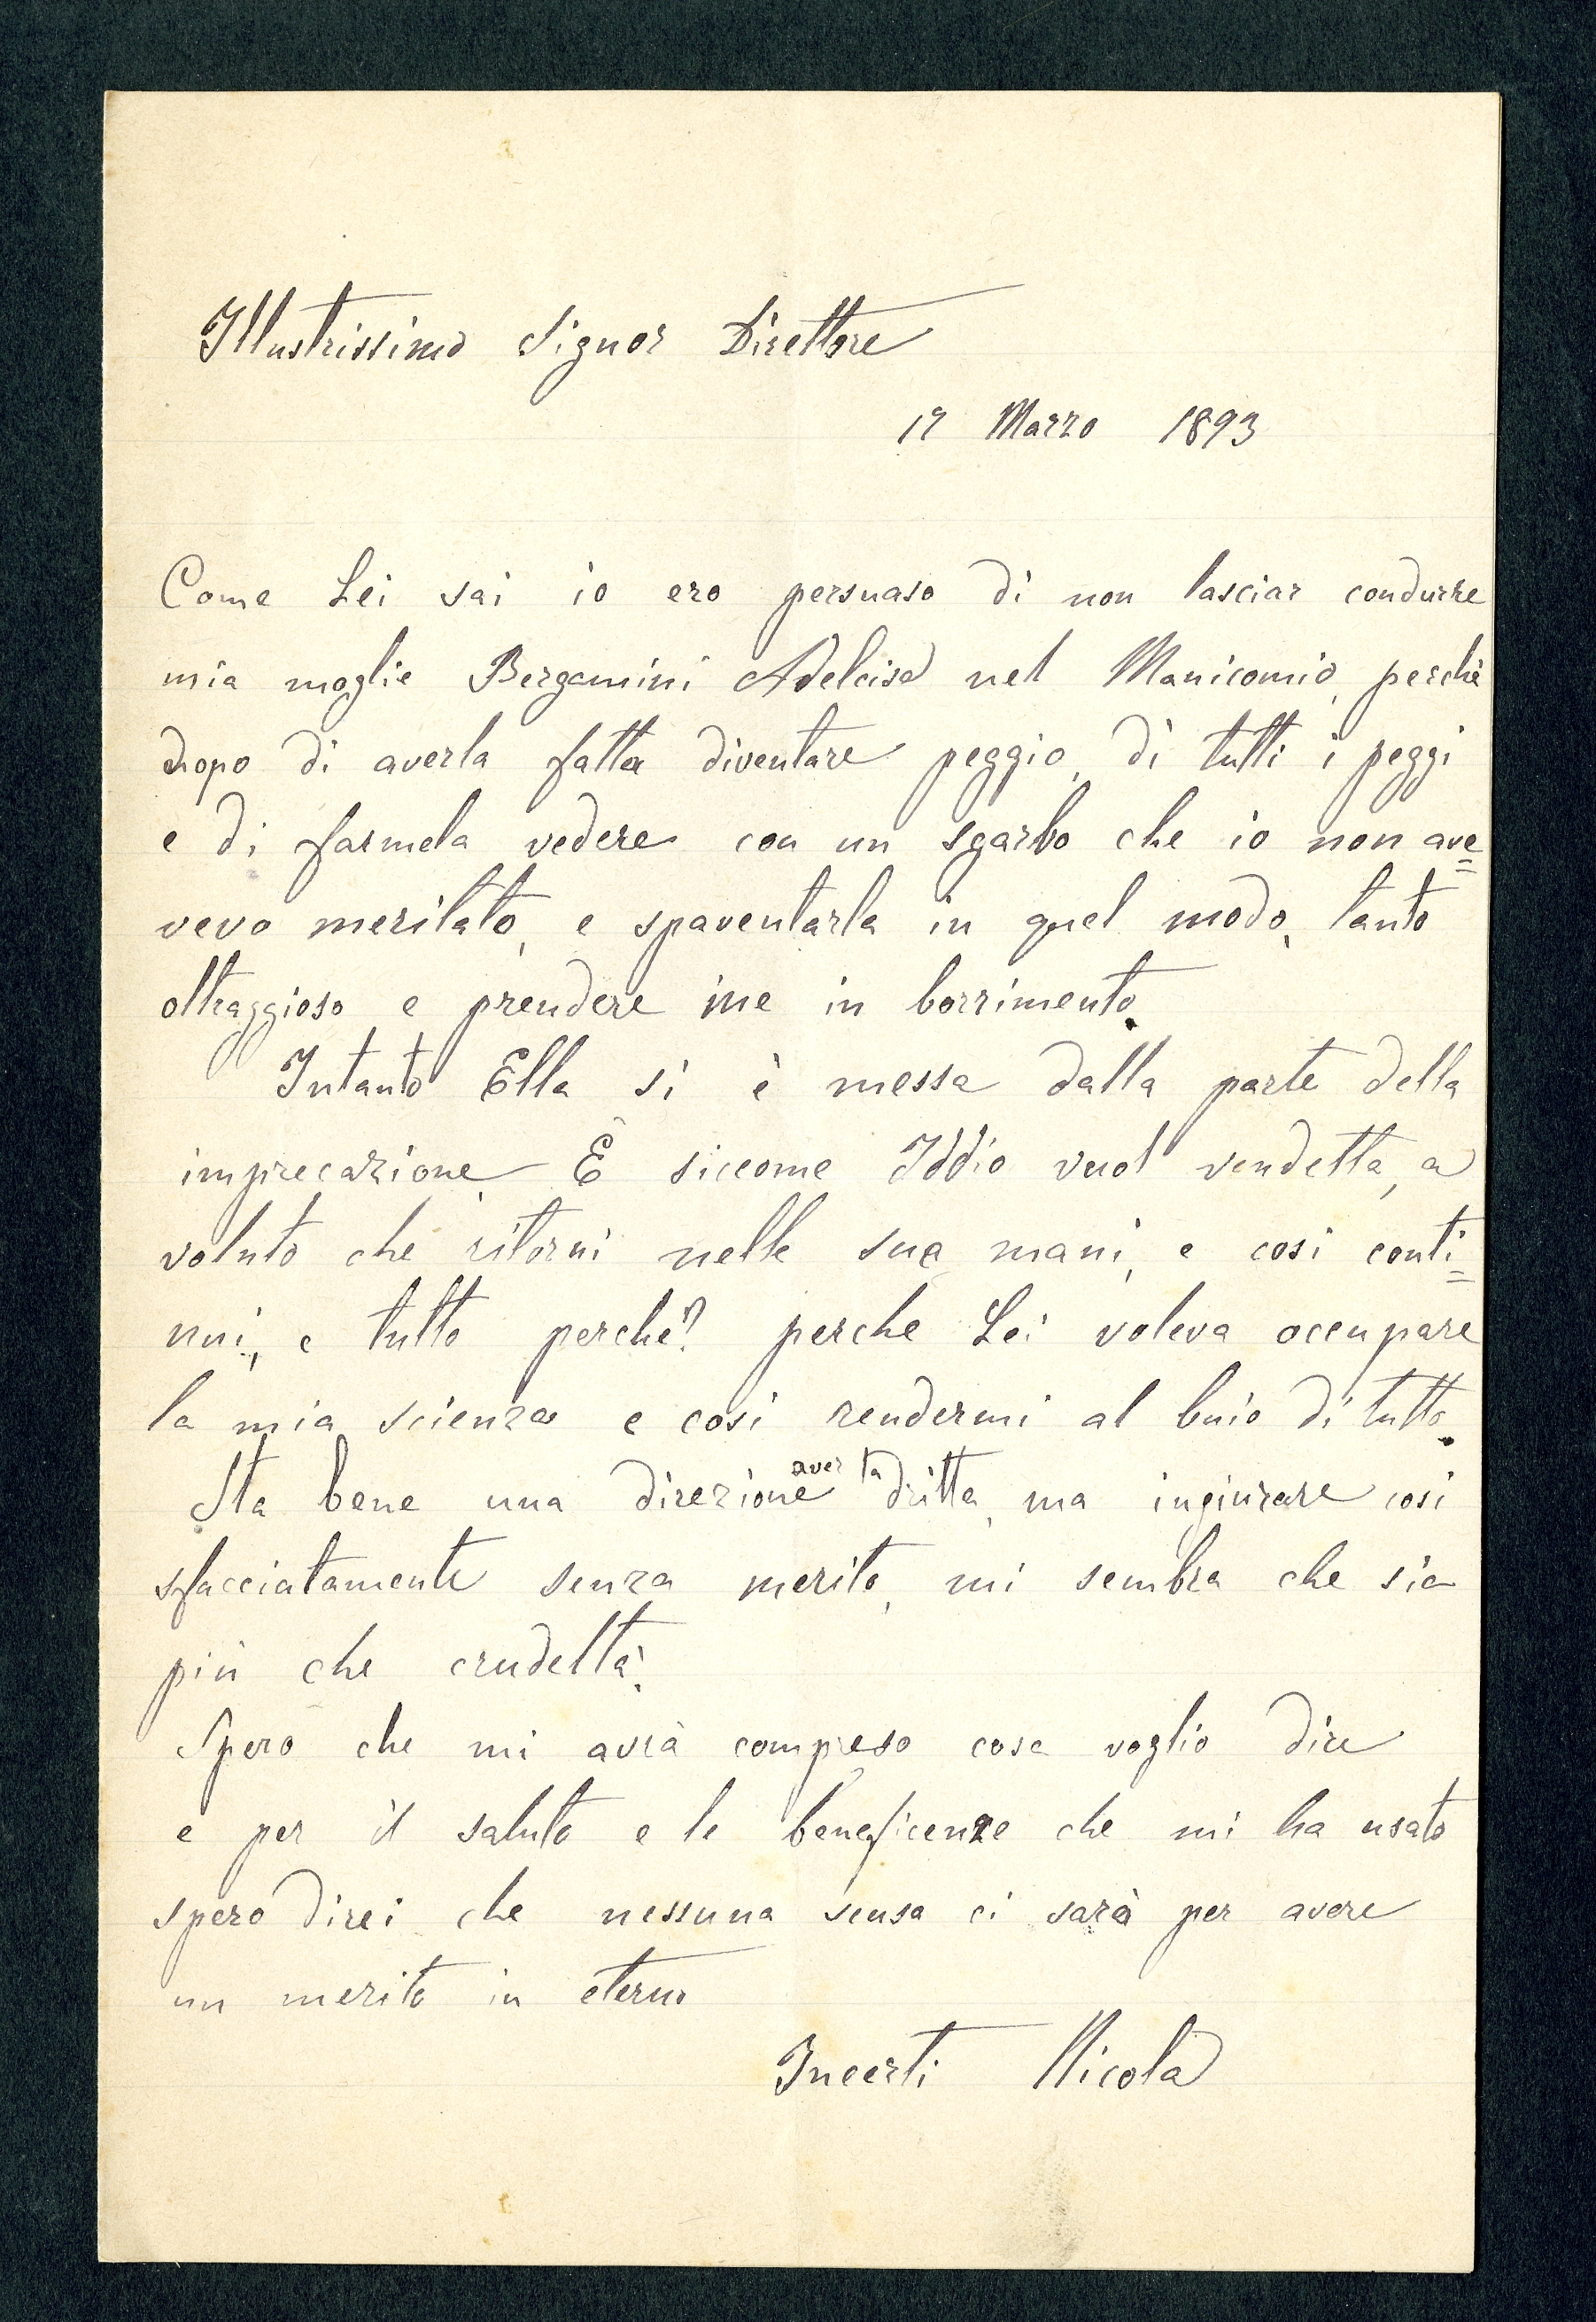 Illustrissimo Signor Direttore
17 Marzo 1893
Come Lei sai io ero persuaso di non lasciar condurre
mia moglie Bergamini Adelcisa nel Manicomio, perchè
dopo di averla fatta diventare peggio, di tutti i peggi
e di farmela vedere con un sgarbo che io non ave=
vevo meritato, e spaventarla in quel modo, tanto
oltraggioso e prendere me in borrimento.
Intanto Ella si è messa dalla parte della
imprecazione. E siccome Iddio vuol vendetta, a
voluto che ritorni nelle sue mani, e cosi conti=
nui, e tutto perchè? perche Lei voleva occupare
la mia scienza e cosi rendermi al buio di tutto.
Sta bene una direzione aver la dritta, ma ingiurare cosi
sfacciatamente senza merito, mi sembra che sia
più che crudeltà.
Spero che mi avrà compreso cosa voglio dire
e per il saluto e le beneficenze che mi ha usato
spero direi che nessuna scusa ci sarà per avere
un merito in eterno
Incerti Nicola